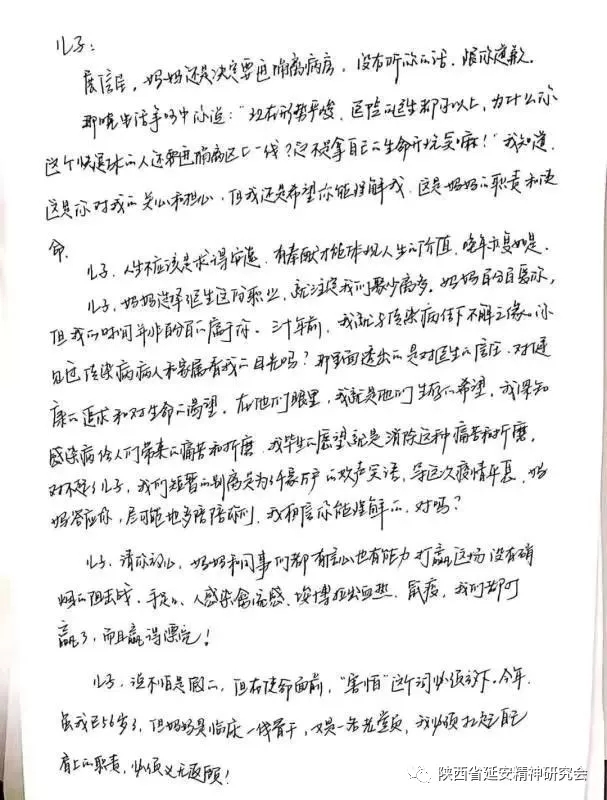 儿子：
展信佳，妈妈还是决定要进隔离病房，没有听你的话，跟你道歉。
那晚电话争吵中你说：“现在形势严峻，医院的医生都可以上，为什么你
这个快退休的人还要进隔离区上一线？这不是拿自己的生命开玩笑嘛！”我知道，
这是你对我的关心和担心，但我还是希望你能理解我，这是妈妈的职责和使
命。
儿子，人生不应该是求得安逸，有奉献才能体现人生的价值，晚年亦复如是。
儿子，妈妈选择医生这份职业，就注定我们聚少离多，妈妈百分百爱你，
但我的时间并非百分百的属于你。三十年前，我就与传染病结下不解之缘。你
见过传染病病人和家属看我的目光吗？那里面透出的是对医生的信任、对健
康的追求和对生命的渴望，在他们眼里，我就是他们生存的希望，我深知
感染病给人们带来的痛苦和折磨，我毕生的愿望就是消除这种痛苦和折磨，
对不起了儿子，我们短暂的别离是为了千家万户的欢声笑语，等这次疫情平复，妈
妈答应你，尽可能地多陪陪你们，我相信你能理解的，对吗？
儿子，请你放心，妈妈和同事们都有信心也有能力打赢这场没有硝
烟的阻击战。手足口、人感染禽流感、埃博拉出血热、鼠疫，我们都打
赢了，而且赢得漂亮！
儿子，说不怕是假的，但在使命面前，“害怕”这个词必须放下。今年
虽我已56岁了，但妈妈是临床一线骨干，又是一名老党员，我必须扛起自己
肩上的职责，必须义无返顾！
陕西省延安精神研究会